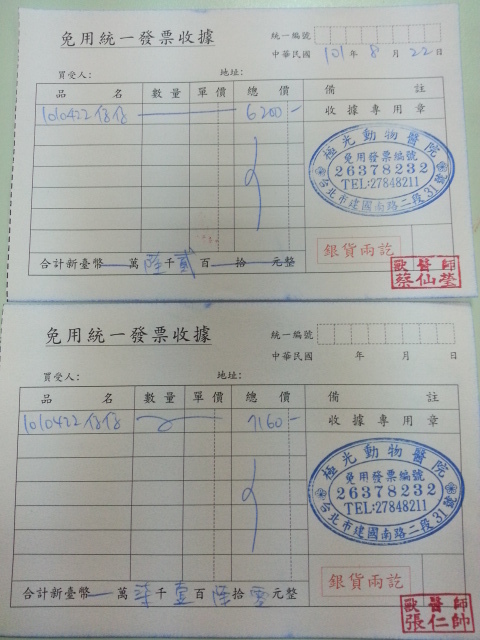 免用統一發票收據
統一編號
中華民國 101 年 8 月 22 日
買受人： 地址：
品 名 數量 單價 總 價 備 註
1010422 信信 6200 收據專用章
極光動物醫院
免用發票編號
26378232
TEL:27848211
台北市建國南路二段31號
銀貨兩訖
獸醫師
蔡仙瑩
合計新臺幣 萬 陸 千 貳 百 拾 元整
免用統一發票收據
統一編號
中華民國 年 月 日
買受人： 地址：
品 名 數量 單價 總 價 備 註
1010422 信信 7160 收據專用章
極光動物醫院
免用發票編號
26378232
TEL:27848211
台北市建國南路二段31號
銀貨兩訖
獸醫師
張仁帥
合計新臺幣 萬 柒 千 壹 百 陸 拾 零 元整